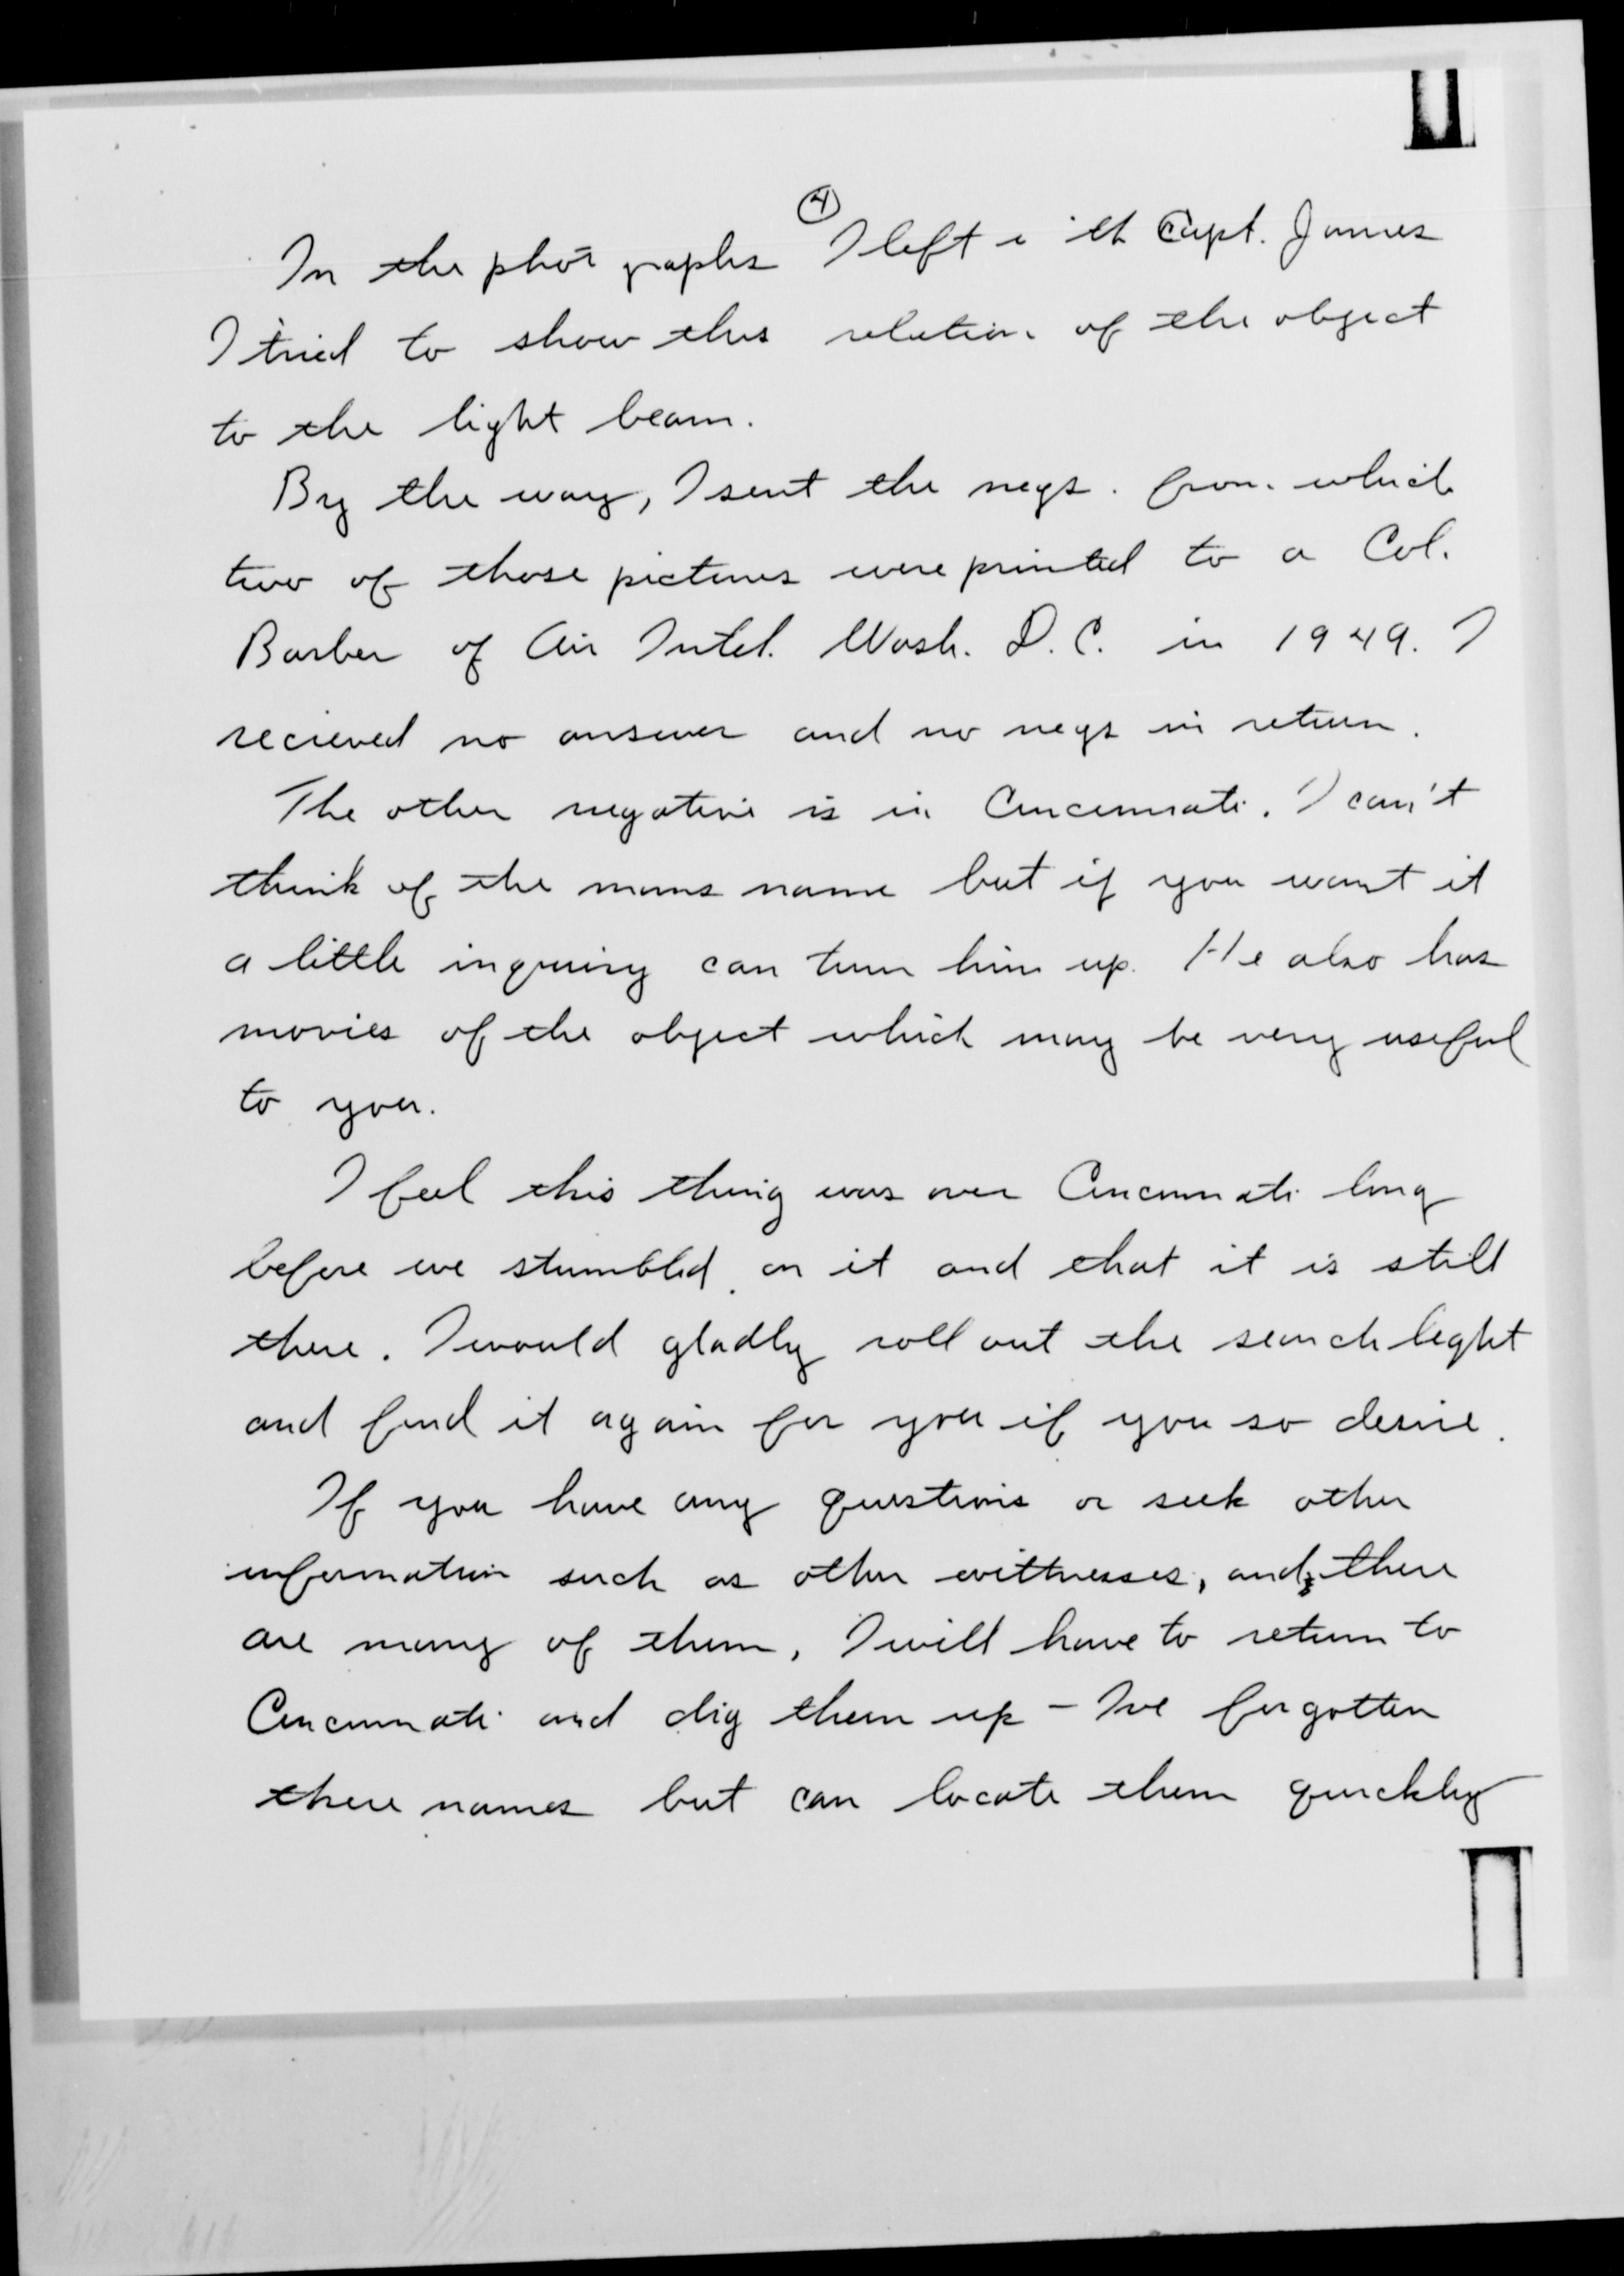 4
In the photographs I left with Capt. James
I tried to show this relation of the object
to the light beam.
By the way, I sent the negs. from which
two of those pictures were printed to a Col.
Barber of Air Intel. Wash. D.C. in 1949. I
recieved no answer and no negs in return.
The other negative is in Cincinnati. I can't
think of the mans name but if you want it
a little inquiry can turn him up. He also has
movies of the object which may be very useful
to you.
I feel this thing was over Cincinnati long
before we stumbled on it and that it is still
there. I would gladly roll out the searchlight
and find it again for you if you so desire.
If you have any questions or seek other
information such as other wittnesses, and there
are many of them, I will have to return to
Cincinnati and dig them up – I've forgotten
there names but can locate them quickly